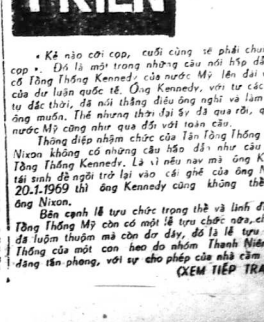 Ý KIẾN
• Kẻ nào cỡi cọp, cuối cùng sẽ phải chui
cọp •. Đó là một trong những câu nói hấp dẫ
cố Tổng Thống Kennedy của nước Mỹ lên đài
của dư luận quốc tế. Ông Kennedy, với tư các
tụ đắc thời, đã nói thẳng điều ông nghĩ và làm
ông muốn. Thế nhưng thời đại ấy đã qua rồi, q
nước Mỹ cũng như qua đối với toàn cầu.
Thông điệp nhậm chức của Tân Tổng Thống
Nixon không có những câu hấp dẫn như câu
Tổng Thống Kennedy. Là vì nếu nay mà ông K
tái sinh để ngồi trở lại vào cái ghế của ông N
20-1-1969 thì ông Kennedy cũng không thể
ông Nixon.
Bên cạnh lễ tựu chức trọng thể và linh đì
Tổng Thống Mỹ còn có một lễ tựu chức nữa, ch
đã luộm thuộm mà còn dơ dáy, đó là lễ tựu
Thống của một con heo do nhóm Thanh Niên
đăng tân phong, với sự cho phép của nhà cầm
(XEM TIẾP TRA